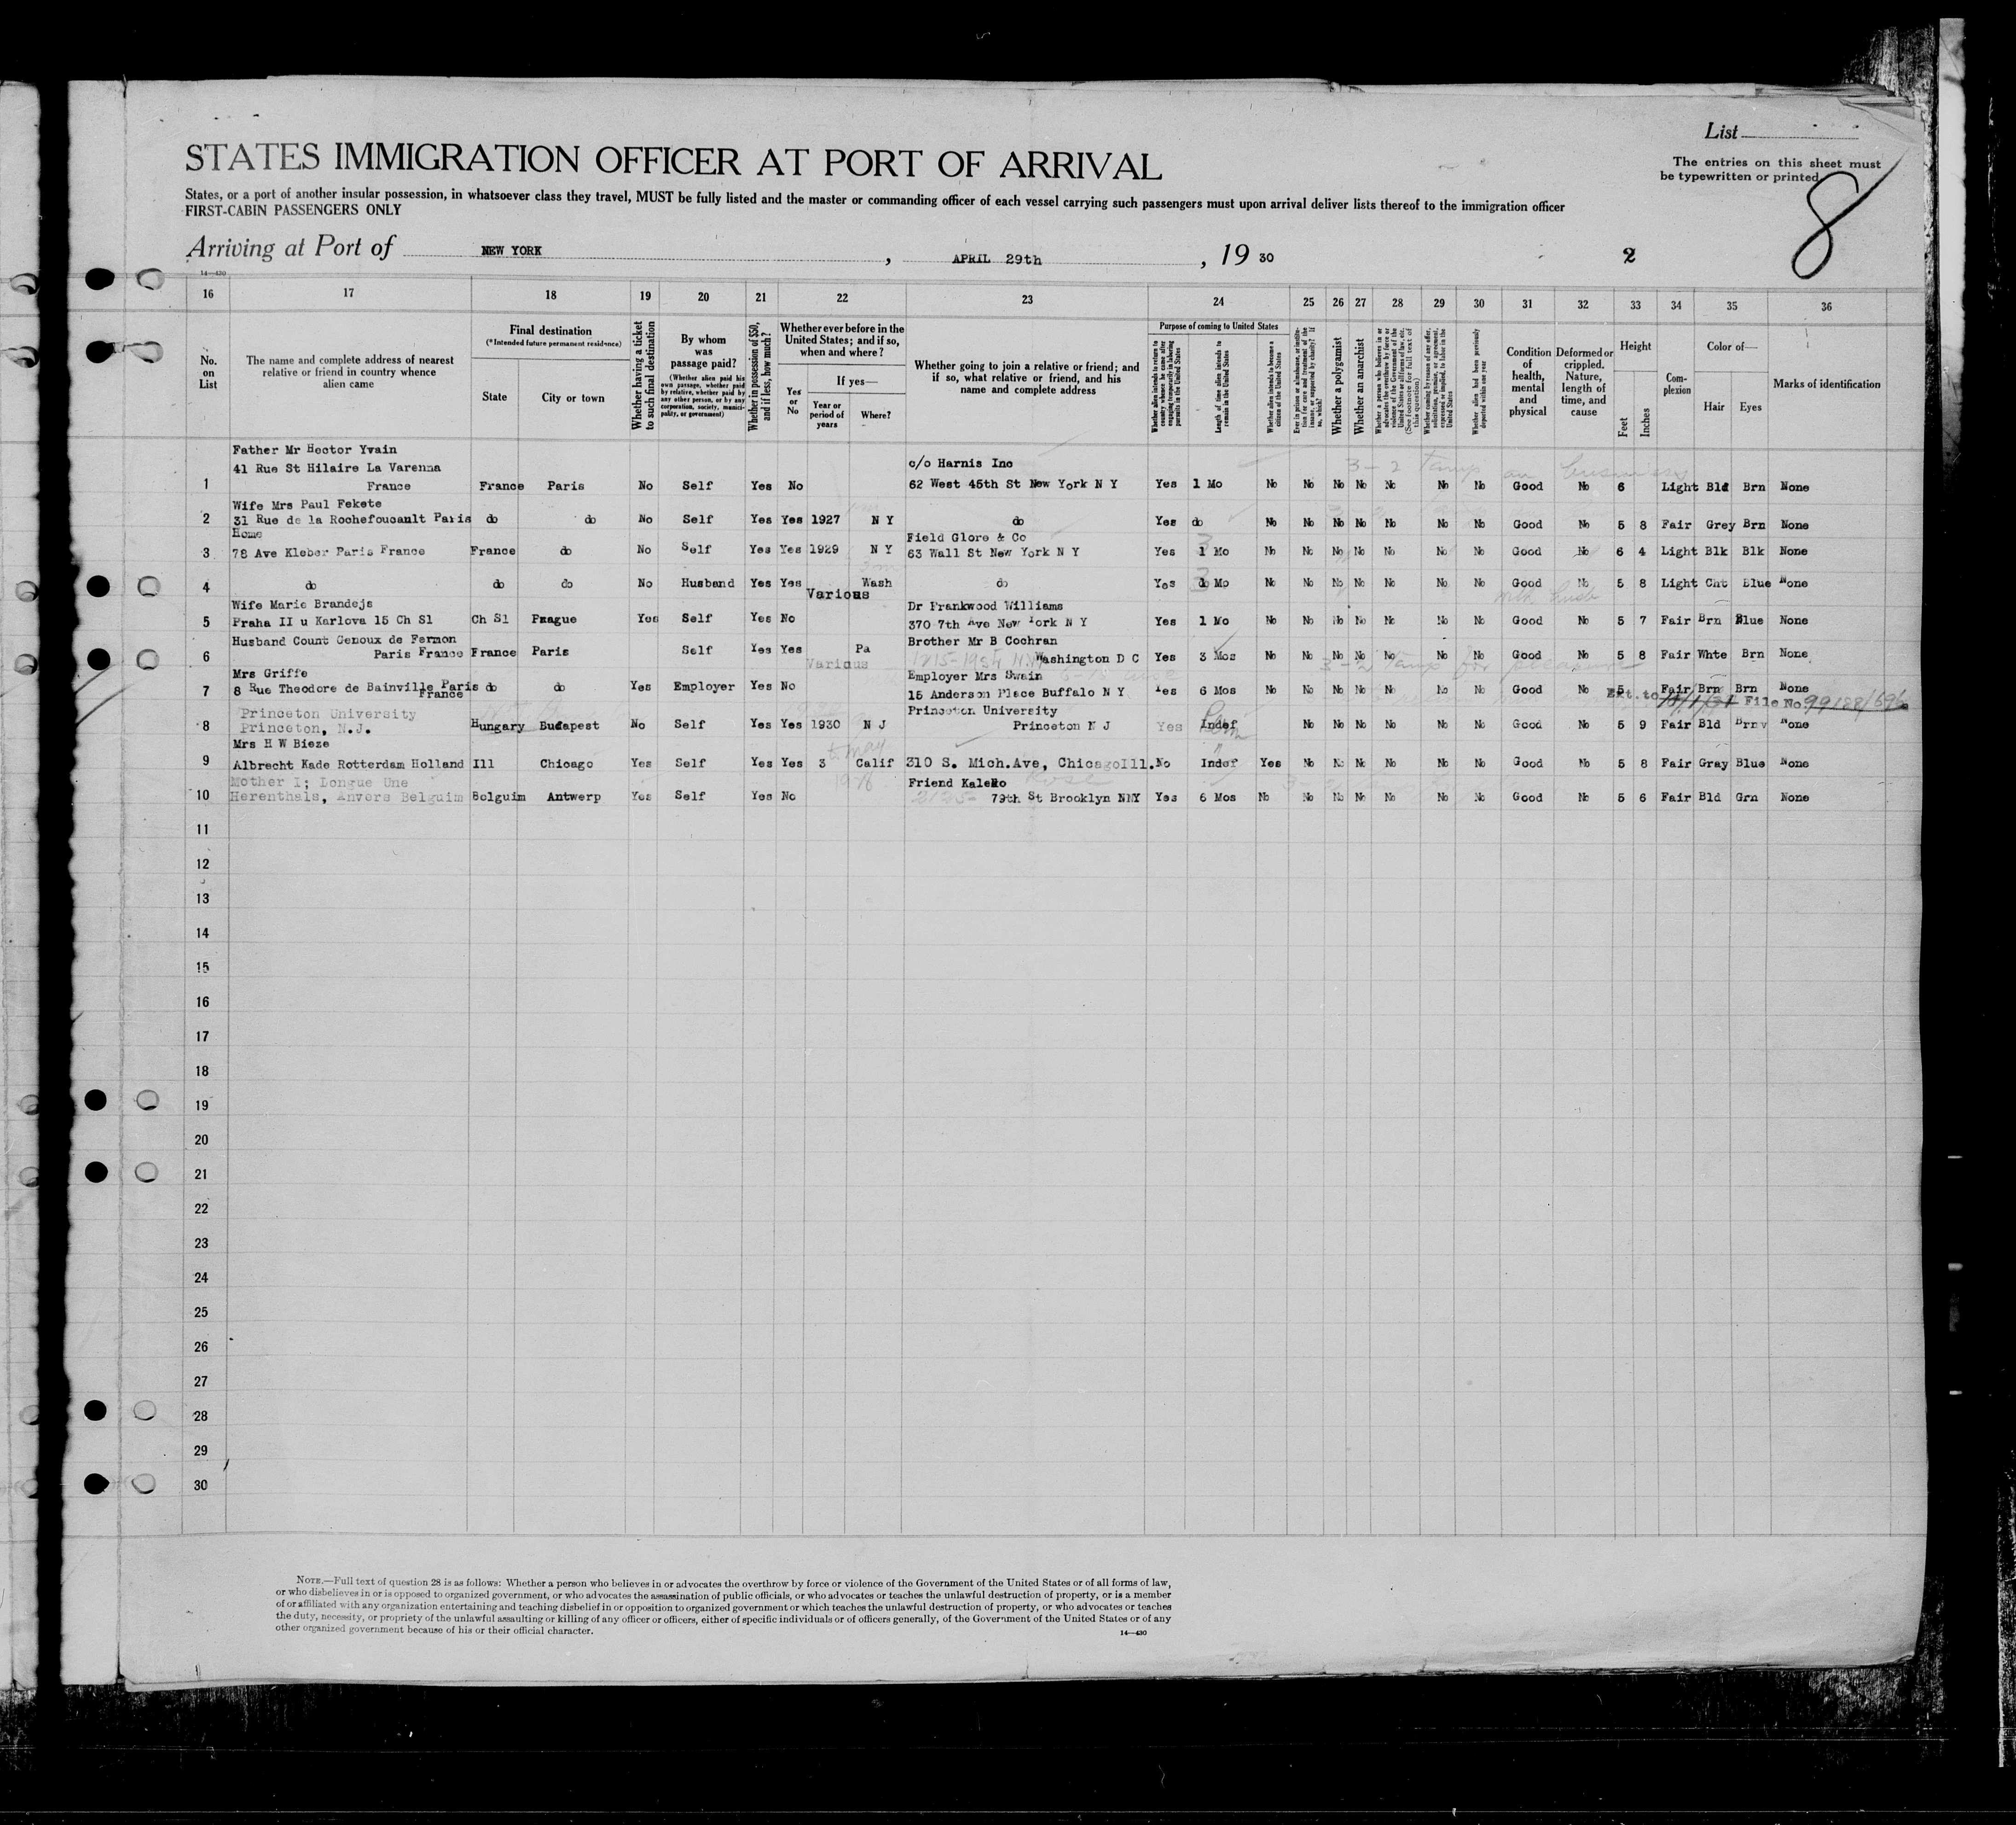 List
The entries on this sheet must
be typewritten or printed
8
STATES IMMIGRATION OFFICER AT PORT OF ARRIVAL
States, or a port of another insular possession, in whatsoever class they travel, MUST be fully listed and the master or commanding officer of each vessel carrying such passengers must upon arrival deliver lists thereof to the immigration officer
FIRST-CABIN PASSENGERS ONLY
Arriving at Port of NEW YORK , APRIL 29th , 19 30
2
14—430
16 17 18 19 20 21 22 23 24 25 26 27 28 29 30 31 32 33 34 35 36
No. on List
The name and complete address of nearest relative or friend in country whence alien came
Final destination
(*Intended future permanent residence)
State
City or town
Whether having a ticket to such final destination
By whom was passage paid?
(Whether alien paid his own passage, whether paid by relative, whether paid by any other person, or by any corporation, society, municipality, or government)
Whether in possession of $50, and if less, how much?
Whether ever before in the United States; and if so, when and where?
Yes or No
If yes—
Year or period of years
Where?
Whether going to join a relative or friend; and if so, what relative or friend, and his name and complete address
Purpose of coming to United States
Whether alien intends to return to country whence he came after engaging temporarily in laboring pursuits in the United States
Length of time alien intends to remain in the United States
Whether alien intends to become a citizen of the United States
Ever in prison or almshouse, or institution for care and treatment of the insane, or supported by charity? If so, which?
Whether a polygamist
Whether an anarchist
Whether a person who believes in or advocates the overthrow by force or violence of the Government of the United States or all forms of law, etc. (See footnote for full text of this question)
Whether coming by reason of any offer, solicitation, promise, or agreement, expressed or implied, to labor in the United States
Whether alien had been previously deported within one year
Condition of health, mental and physical
Deformed or crippled. Nature, length of time, and cause
Height
Feet
Inches
Complexion
Color of—
Hair
Eyes
Marks of identification
Father Mr Hector Yvain
41 Rue St Hilaire La Varenna c/o Harnis Inc
1 France France Paris No Self Yes No 62 West 45th St New York N Y Yes 1 Mo No No No No No No No Good No 6 Light Bld Brn None
Wife Mrs Paul Fekete
2 31 Rue de la Rochefoucault Paris do do No Self Yes Yes 1927 N Y do Yes do No No No No No No No Good No 5 8 Fair Grey Brn None
Home Field Glore & Co
3 78 Ave Kleber Paris France France do No Self Yes Yes 1929 N Y 63 Wall St New York N Y Yes 1 Mo No No No No No No No Good No 6 4 Light Blk Blk None
4 do do do No Husband Yes Yes Various Wash do Yes 1 Mo No No No No No No No Good No 5 8 Light Cht Blue None
Wife Marie Brandejs Dr Frankwood Williams
5 Praha II u Karlova 15 Ch Sl Ch Sl Prague Yes Self Yes No 370 7th Ave New York N Y Yes 1 Mo No No No No No No No Good No 5 7 Fair Brn Blue None
Husband Count Genoux de Fermon Brother Mr B Cochran
6 Paris France France Paris Self Yes Yes Various Pa Washington D C Yes 3 Mos No No No No No No No Good No 5 8 Fair Whte Brn None
Mrs Griffe Employer Mrs Swain
7 8 Rue Theodore de Bainville Paris France do do Yes Employer Yes No 15 Anderson Place Buffalo N Y Yes 6 Mos No No No No No No No Good No 5 Fair Brn Brn None
Ext. to File No.
Princeton University Princeton University
8 Princeton, N.J. Hungary Budapest No Self Yes Yes 1930 N J Princeton N J Yes Indef No No No No No No Good No 5 9 Fair Bld Brn None
Mrs H W Bieze
9 Albrecht Kade Rotterdam Holland Ill Chicago Yes Self Yes Yes 3 Calif 310 S. Mich.Ave, ChicagoIll. No Indef Yes No No No No No No Good No 5 8 Fair Gray Blue None
Mother I; Longue Une Friend Kaleko
10 Herenthals, Anvers Belguim Belguim Antwerp Yes Self Yes No 79th St Brooklyn NNY Yes 6 Mos No No No No No No No Good No 5 6 Fair Bld Grn None
11
12
13
14
15
16
17
18
19
20
21
22
23
24
25
26
27
28
29
30
NOTE.—Full text of question 28 is as follows: Whether a person who believes in or advocates the overthrow by force or violence of the Government of the United States or of all forms of law,
or who disbelieves in or is opposed to organized government, or who advocates the assassination of public officials, or who advocates or teaches the unlawful destruction of property, or is a member
of or affiliated with any organization entertaining and teaching disbelief in or opposition to organized government or which teaches the unlawful destruction of property, or who advocates or teaches
the duty, necessity, or propriety of the unlawful assaulting or killing of any officer or officers, either of specific individuals or of officers generally, of the Government of the United States or of any
other organized government because of his or their official character.
14—430